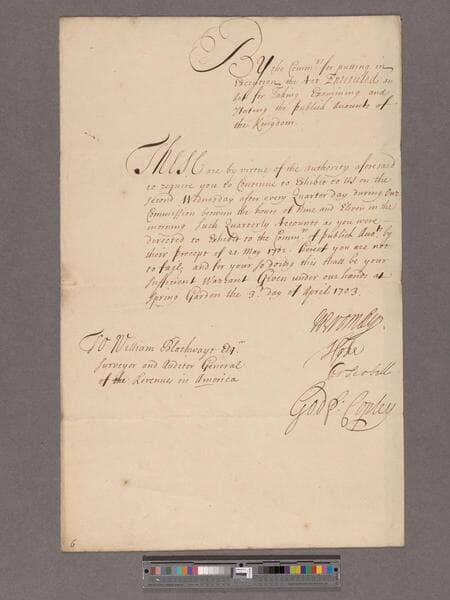 By the Comm.rs for putting in
Execution the Act Entituled an
Act for Taking Examining and
Stating the publick Accounts of
the Kingdom.
These are by virtue of the authority aforesaid
to require you to Continue to Exhibit to Us on the
second Wednesday after every Quarter day during Our
Commission between the hours of Nine and Eleven in the
morning such Quarterly Accounts as you were
directed to Exhibit to the Comm.rs of publick Acc.ts by
their Precept of 21 May 1702. hereof you are not
to fayl, and for your so doing this shall be your
sufficient Warrant Given under our hands at
Spring Garden the 3.d day of April 1703.
Wm Bromley.
To William Blathwayt Esq.r
Surveyor and Auditor General
of the Revenues in America
God: Copley
6